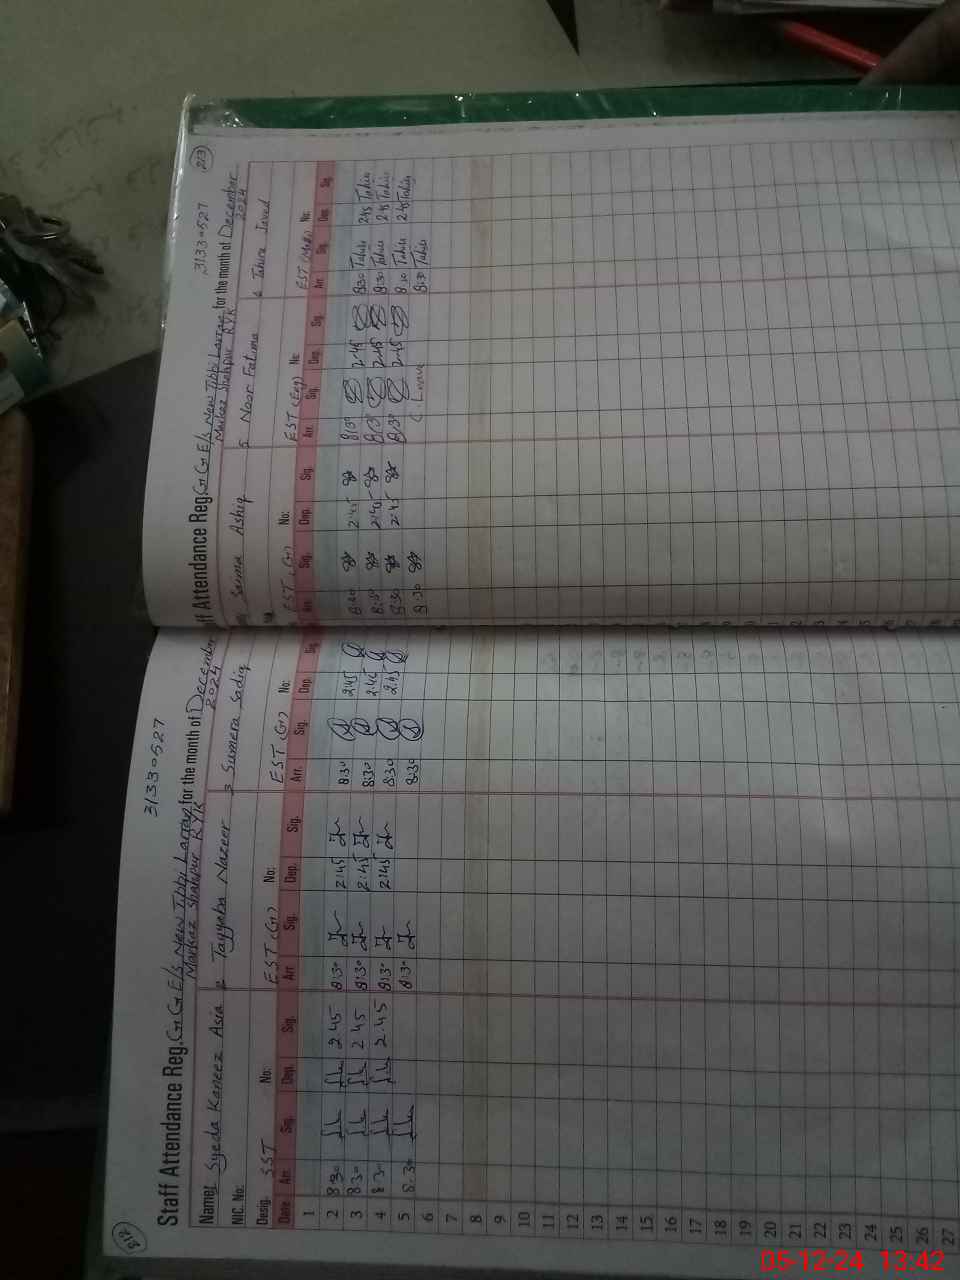 212
3133-527
Staff Attendance Reg. G G E/S New Tibbi Larran for the month of December
Markaz Shahpur RYK 2024
Name: 1 Syeda Kaneez Asia 2 Tayyaba Nazeer 3 Sumera Sadiq
NIC. No:
Desig. SST No: EST (G) No: EST (G) No:
Date Arr. Sig. Dep. Sig. Arr. Sig. Dep. Sig. Arr. Sig. Dep. Sig.
1
2 8:30 2.45 8:30 2:45 8:30 2:45
3 8:30 2.45 8:30 2:45 8:30 2:45
4 8:30 2.45 8:30 2:45 8:30 2:45
5 8:30 8:30 8:30
6
7
8
9
10
11
12
13
14
15
16
17
18
19
20
21
22
23
24
25
26
27
213
3133-527
ff Attendance Reg. G G E/S New Tibbi Larran for the month of December
Markaz Shahpur RYK 2024
Saima Ashiq 5 Noor Fatima 6 Tahira Javed
EST (G) No: EST (Eng) No: EST No:
Arr. Sig. Dep. Sig. Arr. Sig. Dep. Sig. Arr. Sig. Dep. Sig.
8:30 2:45 8:30 2:45 8:30 Tahir 2:45 Tahir
8:30 2:45 8:30 2:45 8:30 Tahir 2:45 Tahir
8:30 2:45 8:30 2:45 8:30 Tahir 2:45 Tahir
8:30 Leave 8:30 Tahir
05-12-24 13:42